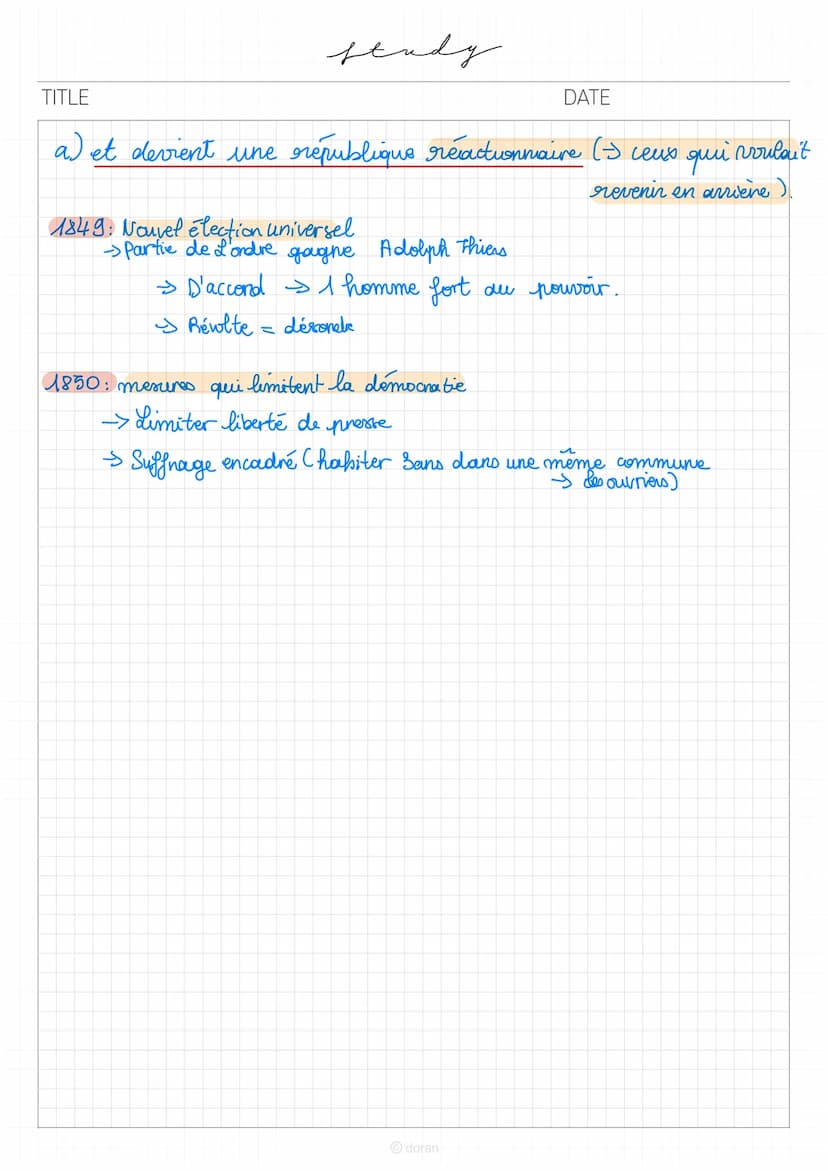 study
TITLE DATE
a) et devient une république réactionnaire (→ ceux qui voulait
revenir en arrière).
1849: Nouvel élection universel
→ Partie de l'ordre gagne Adolph Thiers
→ D'accord → 1 homme fort au pouvoir.
→ Révolte = désordre
1850: mesures qui limitent la démocratie
→ Limiter liberté de presse
→ Suffrage encadré (habiter 3ans dans une même commune
→ les ouvriers)
© doran